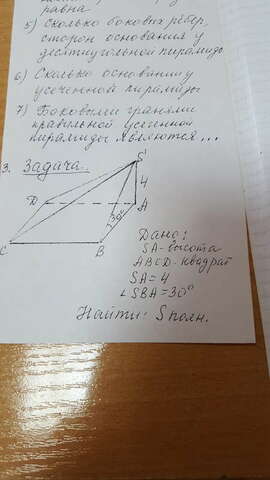 равна
5) Сколько боковых рёбер,
сторон основания у
десятиугольной пирамиды
6) Сколько оснований у
усечённой пирамиды
7) Боковыми гранями
правильной усечённой
пирамиды являются...
3. Задача.
S
4
D
A
30°
C
B
Дано:
SA - высота
ABCD - квадрат
SA = 4
∠SBA = 30°
Найти: Sполн.